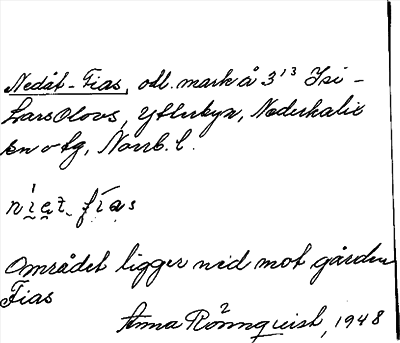 Nedåt-Fias, odl. mark å 3¹³ Isi-
LarsOlovs, Ytterbyn, Nederkalix
sn o tg, Norrb. l.
Området ligger ned mot gården
Fias
Anna Rönnquist, 1948